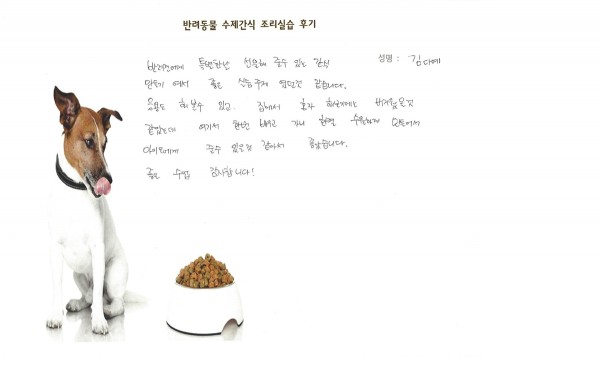 반려동물 수제간식 조리실습 후기
성명 : 김다예
반려견에게 특별한 선물해 줄수 있는 간식
만들기 여서 좋은 실습주제 였던것 같습니다.
응용도 해볼수 있고. 집에서 혼자 하기에는 버거웠을것
같았는데 여기서 한번 배우고 가니 한결 수월하게 만들어서
아이들에게 줄수 있을것 같아서 좋았습니다.
좋은 수업 감사합니다!